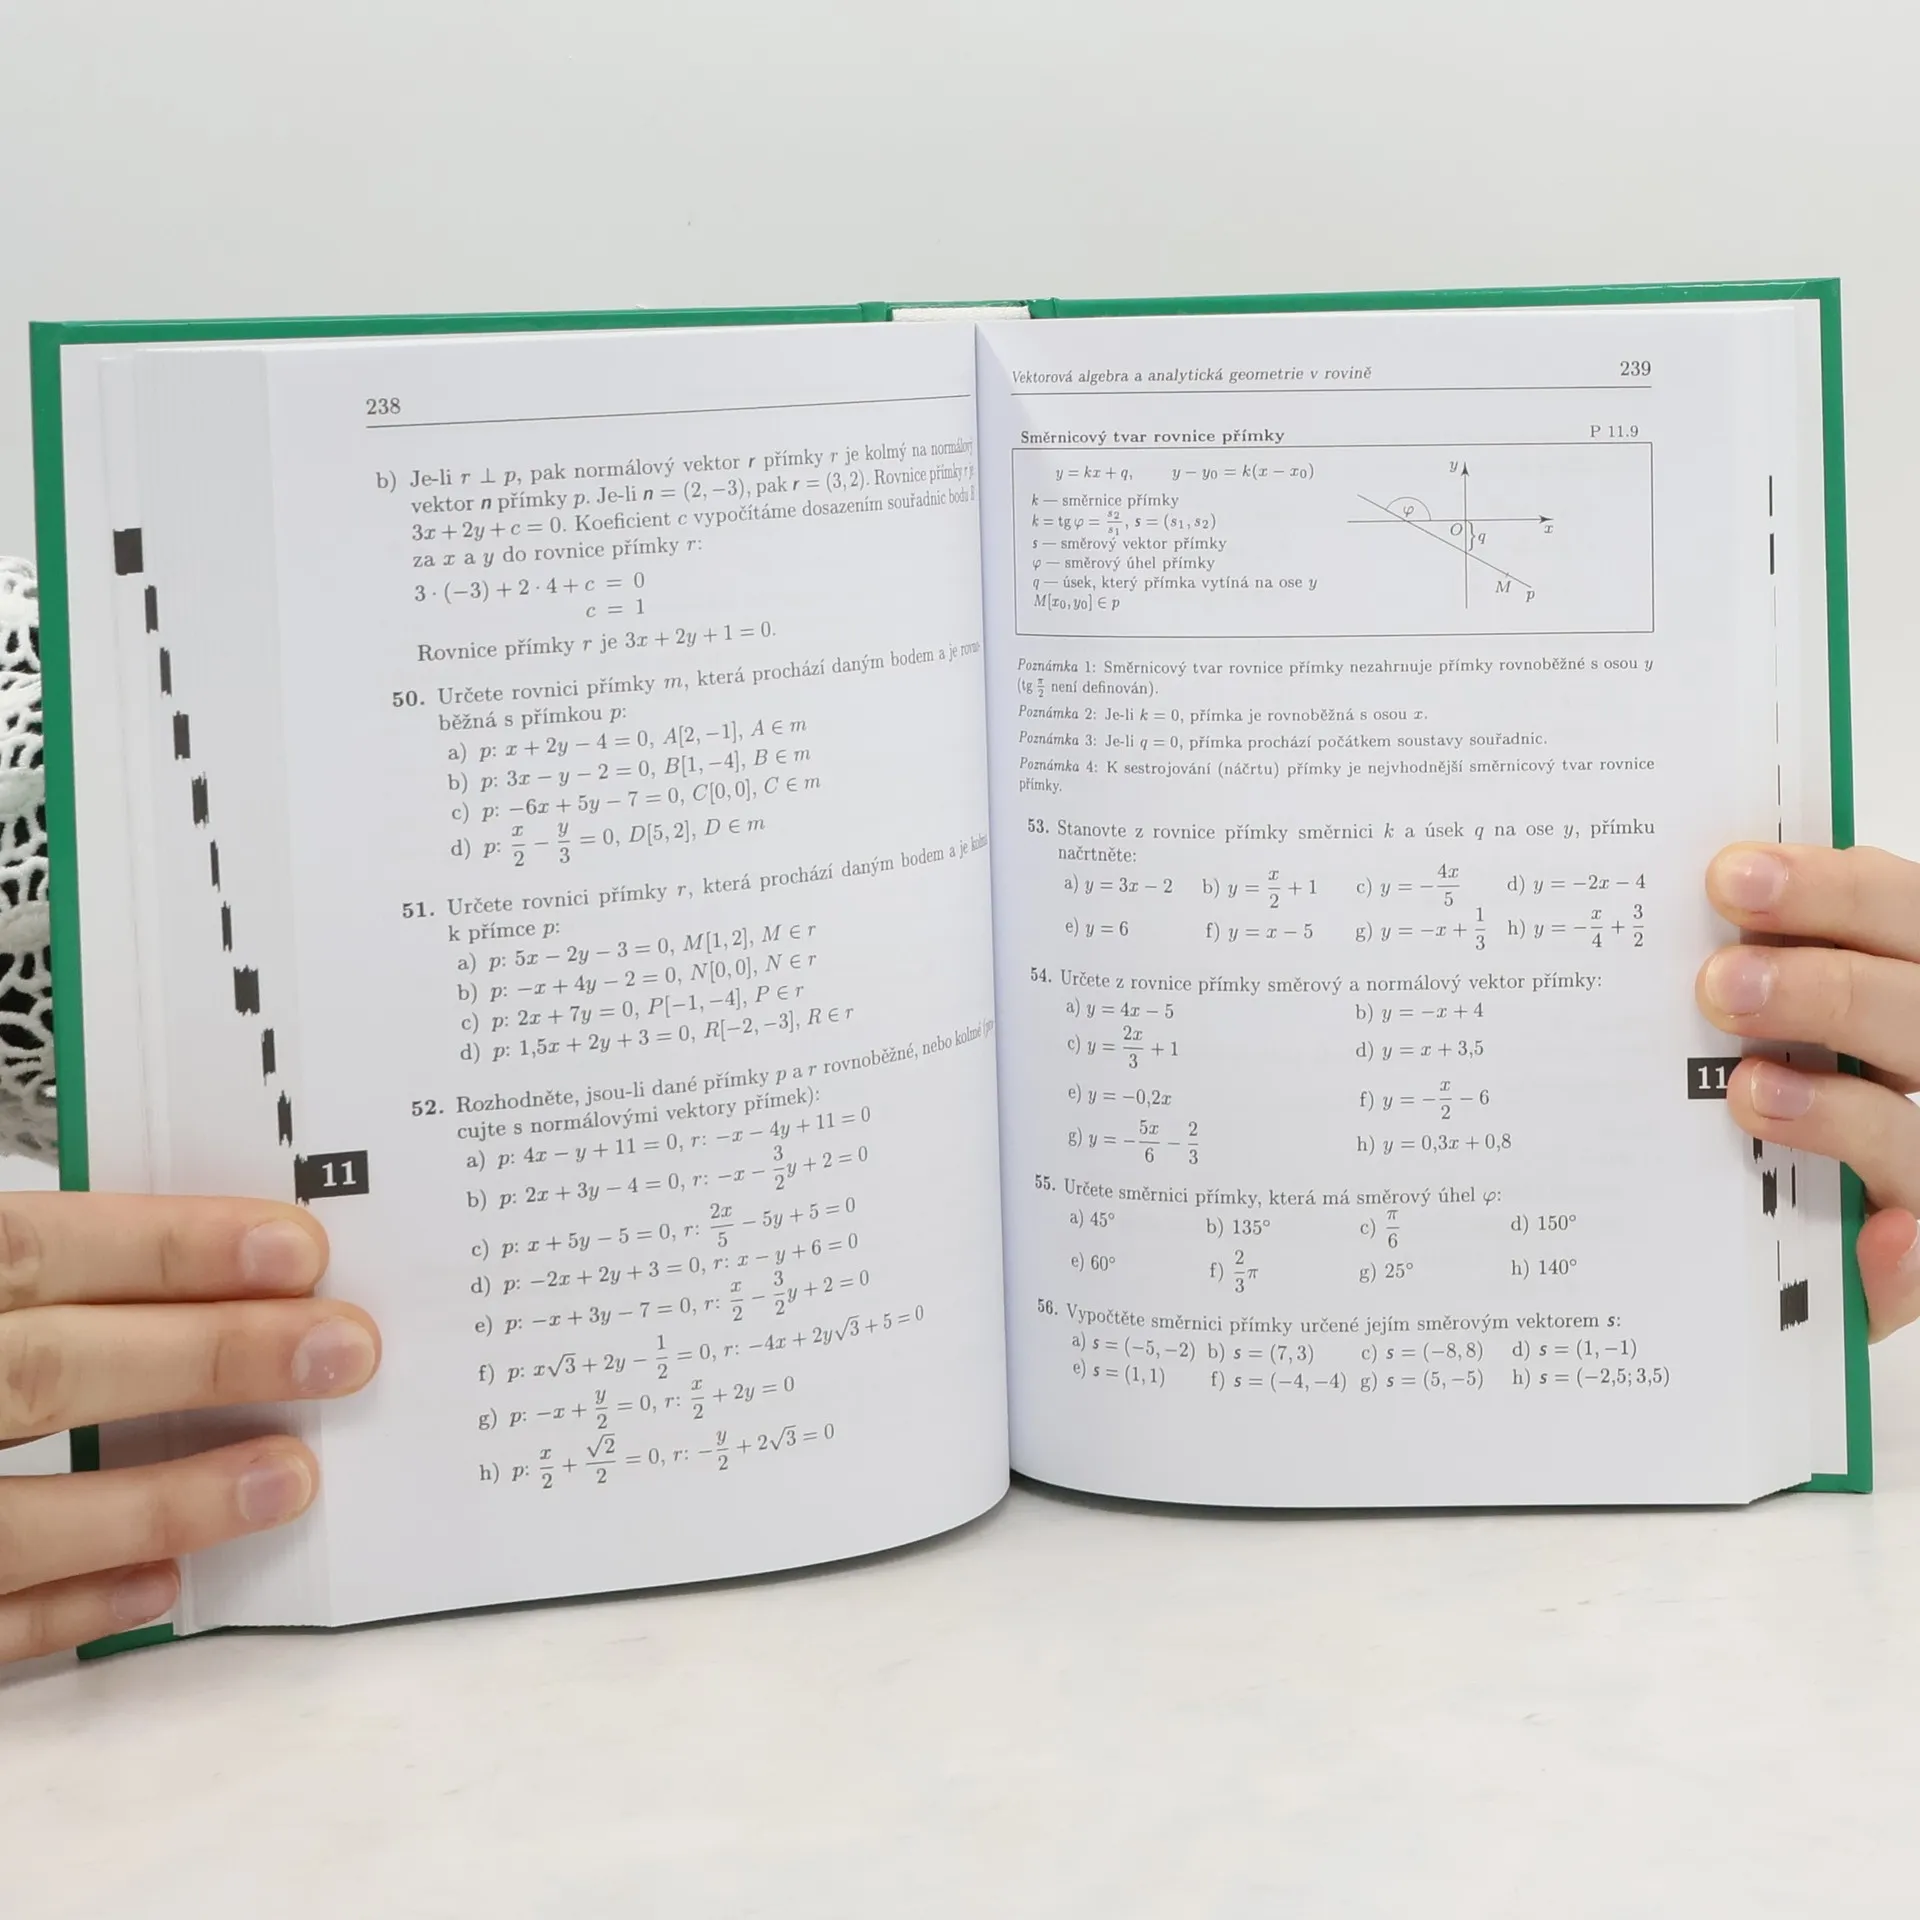 238
b) Je-li r ⊥ p, pak normálový vektor r přímky r je kolmý na normálový
vektor n přímky p. Je-li n = (2, −3), pak r = (3, 2). Rovnice přímky r je
3x + 2y + c = 0. Koeficient c vypočítáme dosazením souřadnic bodu B
za x a y do rovnice přímky r:
3 · (−3) + 2 · 4 + c = 0
c = 1
Rovnice přímky r je 3x + 2y + 1 = 0.
50. Určete rovnici přímky m, která prochází daným bodem a je rovno-
běžná s přímkou p:
a) p: x + 2y − 4 = 0, A[2, −1], A ∈ m
b) p: 3x − y − 2 = 0, B[1, −4], B ∈ m
c) p: −6x + 5y − 7 = 0, C[0, 0], C ∈ m
d) p: x/2 − y/3 = 0, D[5, 2], D ∈ m
51. Určete rovnici přímky r, která prochází daným bodem a je kolmá
k přímce p:
a) p: 5x − 2y − 3 = 0, M[1, 2], M ∈ r
b) p: −x + 4y − 2 = 0, N[0, 0], N ∈ r
c) p: 2x + 7y = 0, P[−1, −4], P ∈ r
d) p: 1,5x + 2y + 3 = 0, R[−2, −3], R ∈ r
52. Rozhodněte, jsou-li dané přímky p a r rovnoběžné, nebo kolmé (pra-
cujte s normálovými vektory přímek):
a) p: 4x − y + 11 = 0, r: −x − 4y + 11 = 0
b) p: 2x + 3y − 4 = 0, r: −x − 3/2 y + 2 = 0
c) p: x + 5y − 5 = 0, r: 2x/5 − 5y + 5 = 0
d) p: −2x + 2y + 3 = 0, r: x − y + 6 = 0
e) p: −x + 3y − 7 = 0, r: x/2 − 3/2 y + 2 = 0
f) p: x√3 + 2y − 1/2 = 0, r: −4x + 2y√3 + 5 = 0
g) p: −x + y/2 = 0, r: x/2 + 2y = 0
h) p: x/2 + √2/2 = 0, r: −y/2 + 2√3 = 0
11
Vektorová algebra a analytická geometrie v rovině 239
Směrnicový tvar rovnice přímky P 11.9
y = kx + q, y − y₀ = k(x − x₀)
k — směrnice přímky
k = tg φ = s₂/s₁, s = (s₁, s₂)
s — směrový vektor přímky
φ — směrový úhel přímky
q — úsek, který přímka vytíná na ose y
M[x₀, y₀] ∈ p
y
φ
O
x
q
M
p
Poznámka 1: Směrnicový tvar rovnice přímky nezahrnuje přímky rovnoběžné s osou y
(tg π/2 není definován).
Poznámka 2: Je-li k = 0, přímka je rovnoběžná s osou x.
Poznámka 3: Je-li q = 0, přímka prochází počátkem soustavy souřadnic.
Poznámka 4: K sestrojování (náčrtu) přímky je nejvhodnější směrnicový tvar rovnice
přímky.
53. Stanovte z rovnice přímky směrnici k a úsek q na ose y, přímku
načrtněte:
a) y = 3x − 2 b) y = x/2 + 1 c) y = −4x/5 d) y = −2x − 4
e) y = 6 f) y = x − 5 g) y = −x + 1/3 h) y = −x/4 + 3/2
54. Určete z rovnice přímky směrový a normálový vektor přímky:
a) y = 4x − 5 b) y = −x + 4
c) y = 2x/3 + 1 d) y = x + 3,5
e) y = −0,2x f) y = −x/2 − 6
g) y = −5x/6 − 2/3 h) y = 0,3x + 0,8
55. Určete směrnici přímky, která má směrový úhel φ:
a) 45° b) 135° c) π/6 d) 150°
e) 60° f) 2/3 π g) 25° h) 140°
56. Vypočtěte směrnici přímky určené jejím směrovým vektorem s:
a) s = (−5, −2) b) s = (7, 3) c) s = (−8, 8) d) s = (1, −1)
e) s = (1, 1) f) s = (−4, −4) g) s = (5, −5) h) s = (−2,5; 3,5)
11